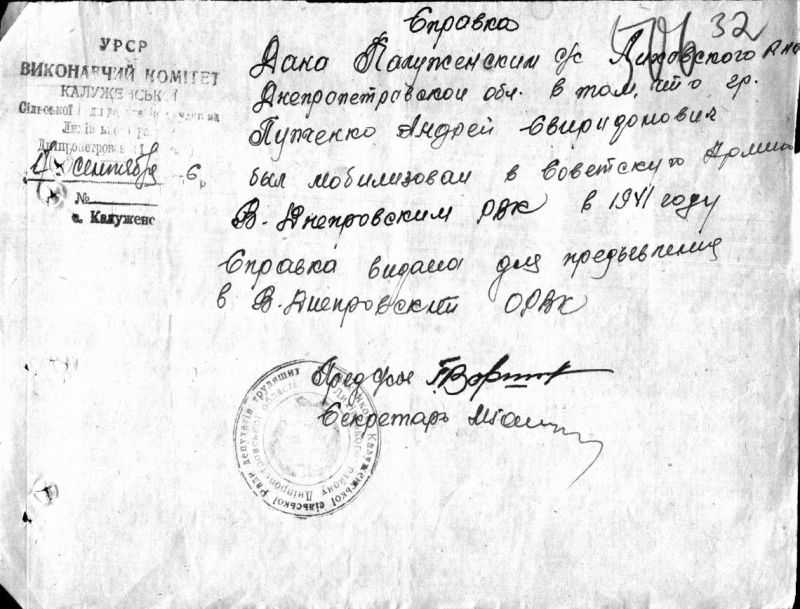 Справка
506 32
УРСР
ВИКОНАВЧИЙ КОМІТЕТ
КАЛУЖЕНСЬКОЇ
Сільської
Дніпропетровс
сентября 6
№
с. Калужено
Дана Калуженским с/с Лиховского р-на
Днепропетровской обл. в том, что гр.
Пуженко Андрей Свиридонович
был мобилизован в Советскую Армию
В.-Днепровским РВК в 1941 году
Справка видана для предъевления
в В.-Днепровский ОРВК
Пред с/сов
Секретарь
Калуженської сільської Ради депутатів трудящих
району Дніпропетровської області